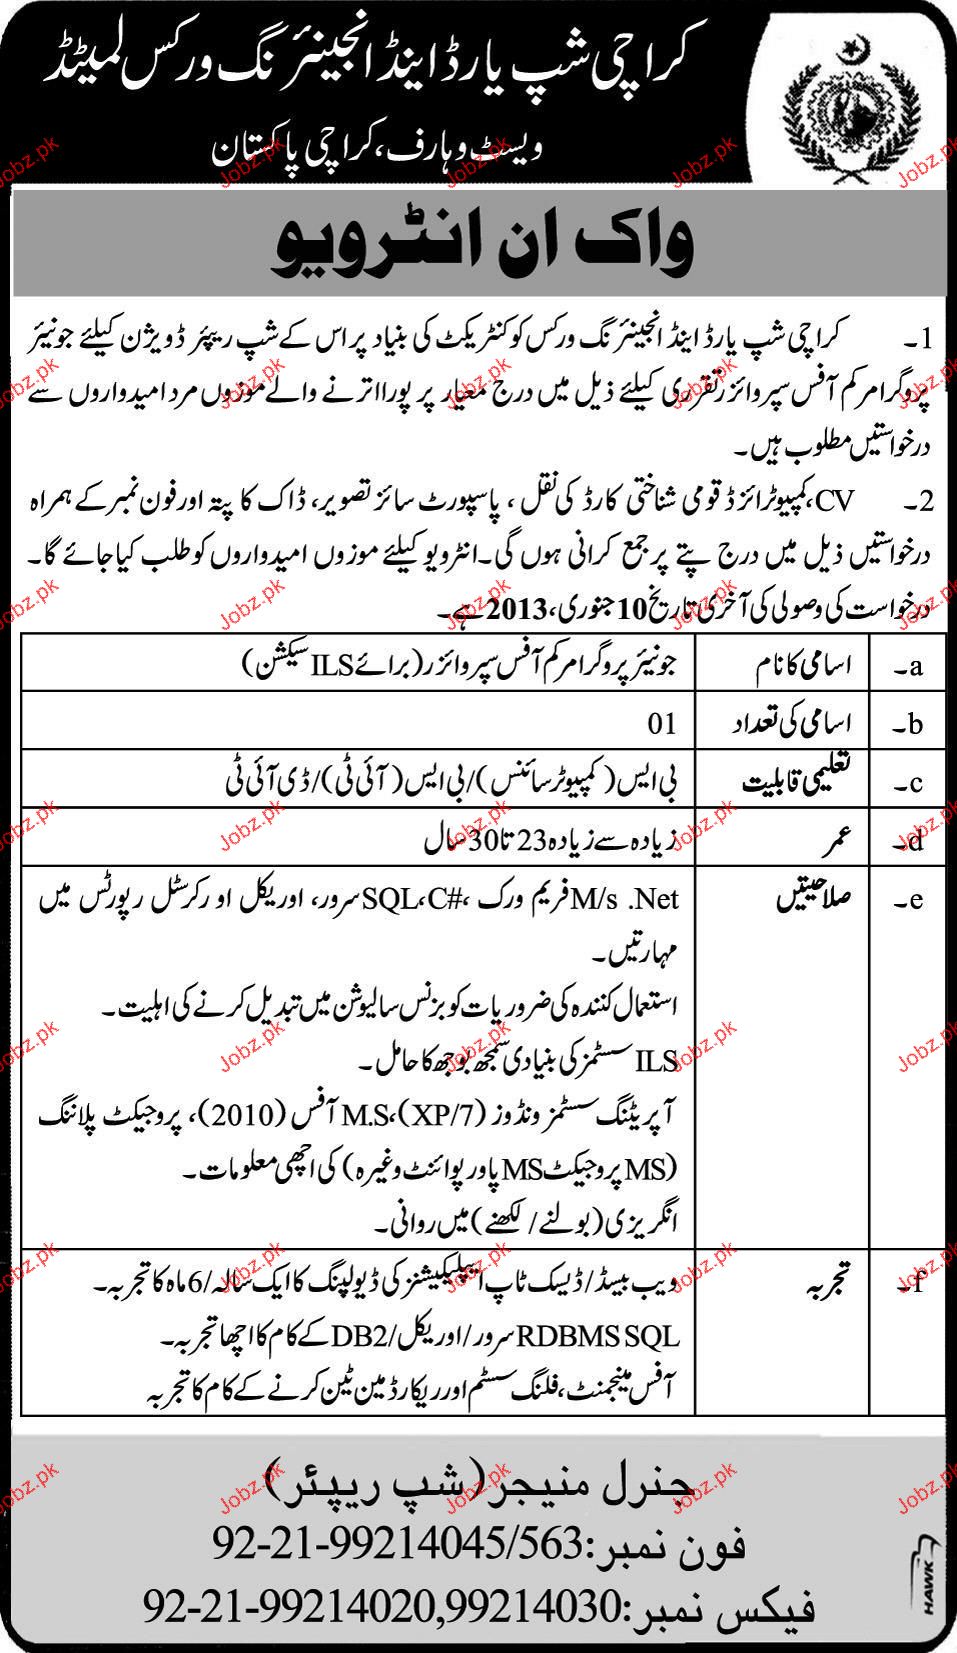 کراچی شپ یارڈ اینڈ انجینئرنگ ورکس لمیٹڈ
ویسٹ وہارف، کراچی پاکستان
واک ان انٹرویو
1۔ کراچی شپ یارڈ اینڈ انجینئرنگ ورکس کو کنٹریکٹ کی بنیاد پر اس کے شپ ریپئر ڈویژن کیلئے جونیئر
پروگرامر کم آفس سپروائزر تقرری کیلئے ذیل میں درج معیار پر پورا اترنے والے موزوں مرد امیدواروں سے
درخواستیں مطلوب ہیں۔
2۔ CV، کمپیوٹرائزڈ قومی شناختی کارڈ کی نقل، پاسپورٹ سائز تصویر، ڈاک کا پتہ اور فون نمبر کے ہمراہ
درخواستیں ذیل میں درج پتے پر جمع کرانی ہوں گی۔ انٹرویو کیلئے موزوں امیدواروں کو طلب کیا جائے گا۔
درخواست کی وصولی کی آخری تاریخ 10 جنوری، 2013 ہے۔
a۔ اسامی کا نام جونیئر پروگرامر کم آفس سپروائزر (برائے ILS سیکشن)
b۔ اسامی کی تعداد 01
c۔ تعلیمی قابلیت بی ایس (کمپیوٹر سائنس)/بی ایس (آئی ٹی)/ڈی آئی ٹی
d۔ عمر زیادہ سے زیادہ 23 تا 30 سال
e۔ صلاحیتیں M/s .Net فریم ورک، C#،SQL سرور، اوریکل اور کرسٹل رپورٹس میں
مہارتیں۔
استعمال کنندہ کی ضروریات کو بزنس سالیوشن میں تبدیل کرنے کی اہلیت۔
ILS سسٹمز کی بنیادی سمجھ بوجھ کا حامل۔
آپریٹنگ سسٹمز ونڈوز (XP/7)، M.S آفس (2010)، پروجیکٹ پلاننگ
(MS پروجیکٹ MS پاور پوائنٹ وغیرہ) کی اچھی معلومات۔
انگریزی (بولنے/لکھنے) میں روانی۔
f۔ تجربہ ویب بیسڈ/ڈیسک ٹاپ ایپلیکیشنز کی ڈیولپنگ کا ایک سالہ/6 ماہ کا تجربہ۔
RDBMS SQL سرور/اوریکل/DB2 کے کام کا اچھا تجربہ۔
آفس مینجمنٹ، فلنگ سسٹم اور ریکارڈ مین ٹین کرنے کے کام کا تجربہ
جنرل منیجر (شپ ریپئر)
فون نمبر: 92-21-99214045/563
فیکس نمبر: 92-21-99214020,99214030
HAWK
Jobz.pk